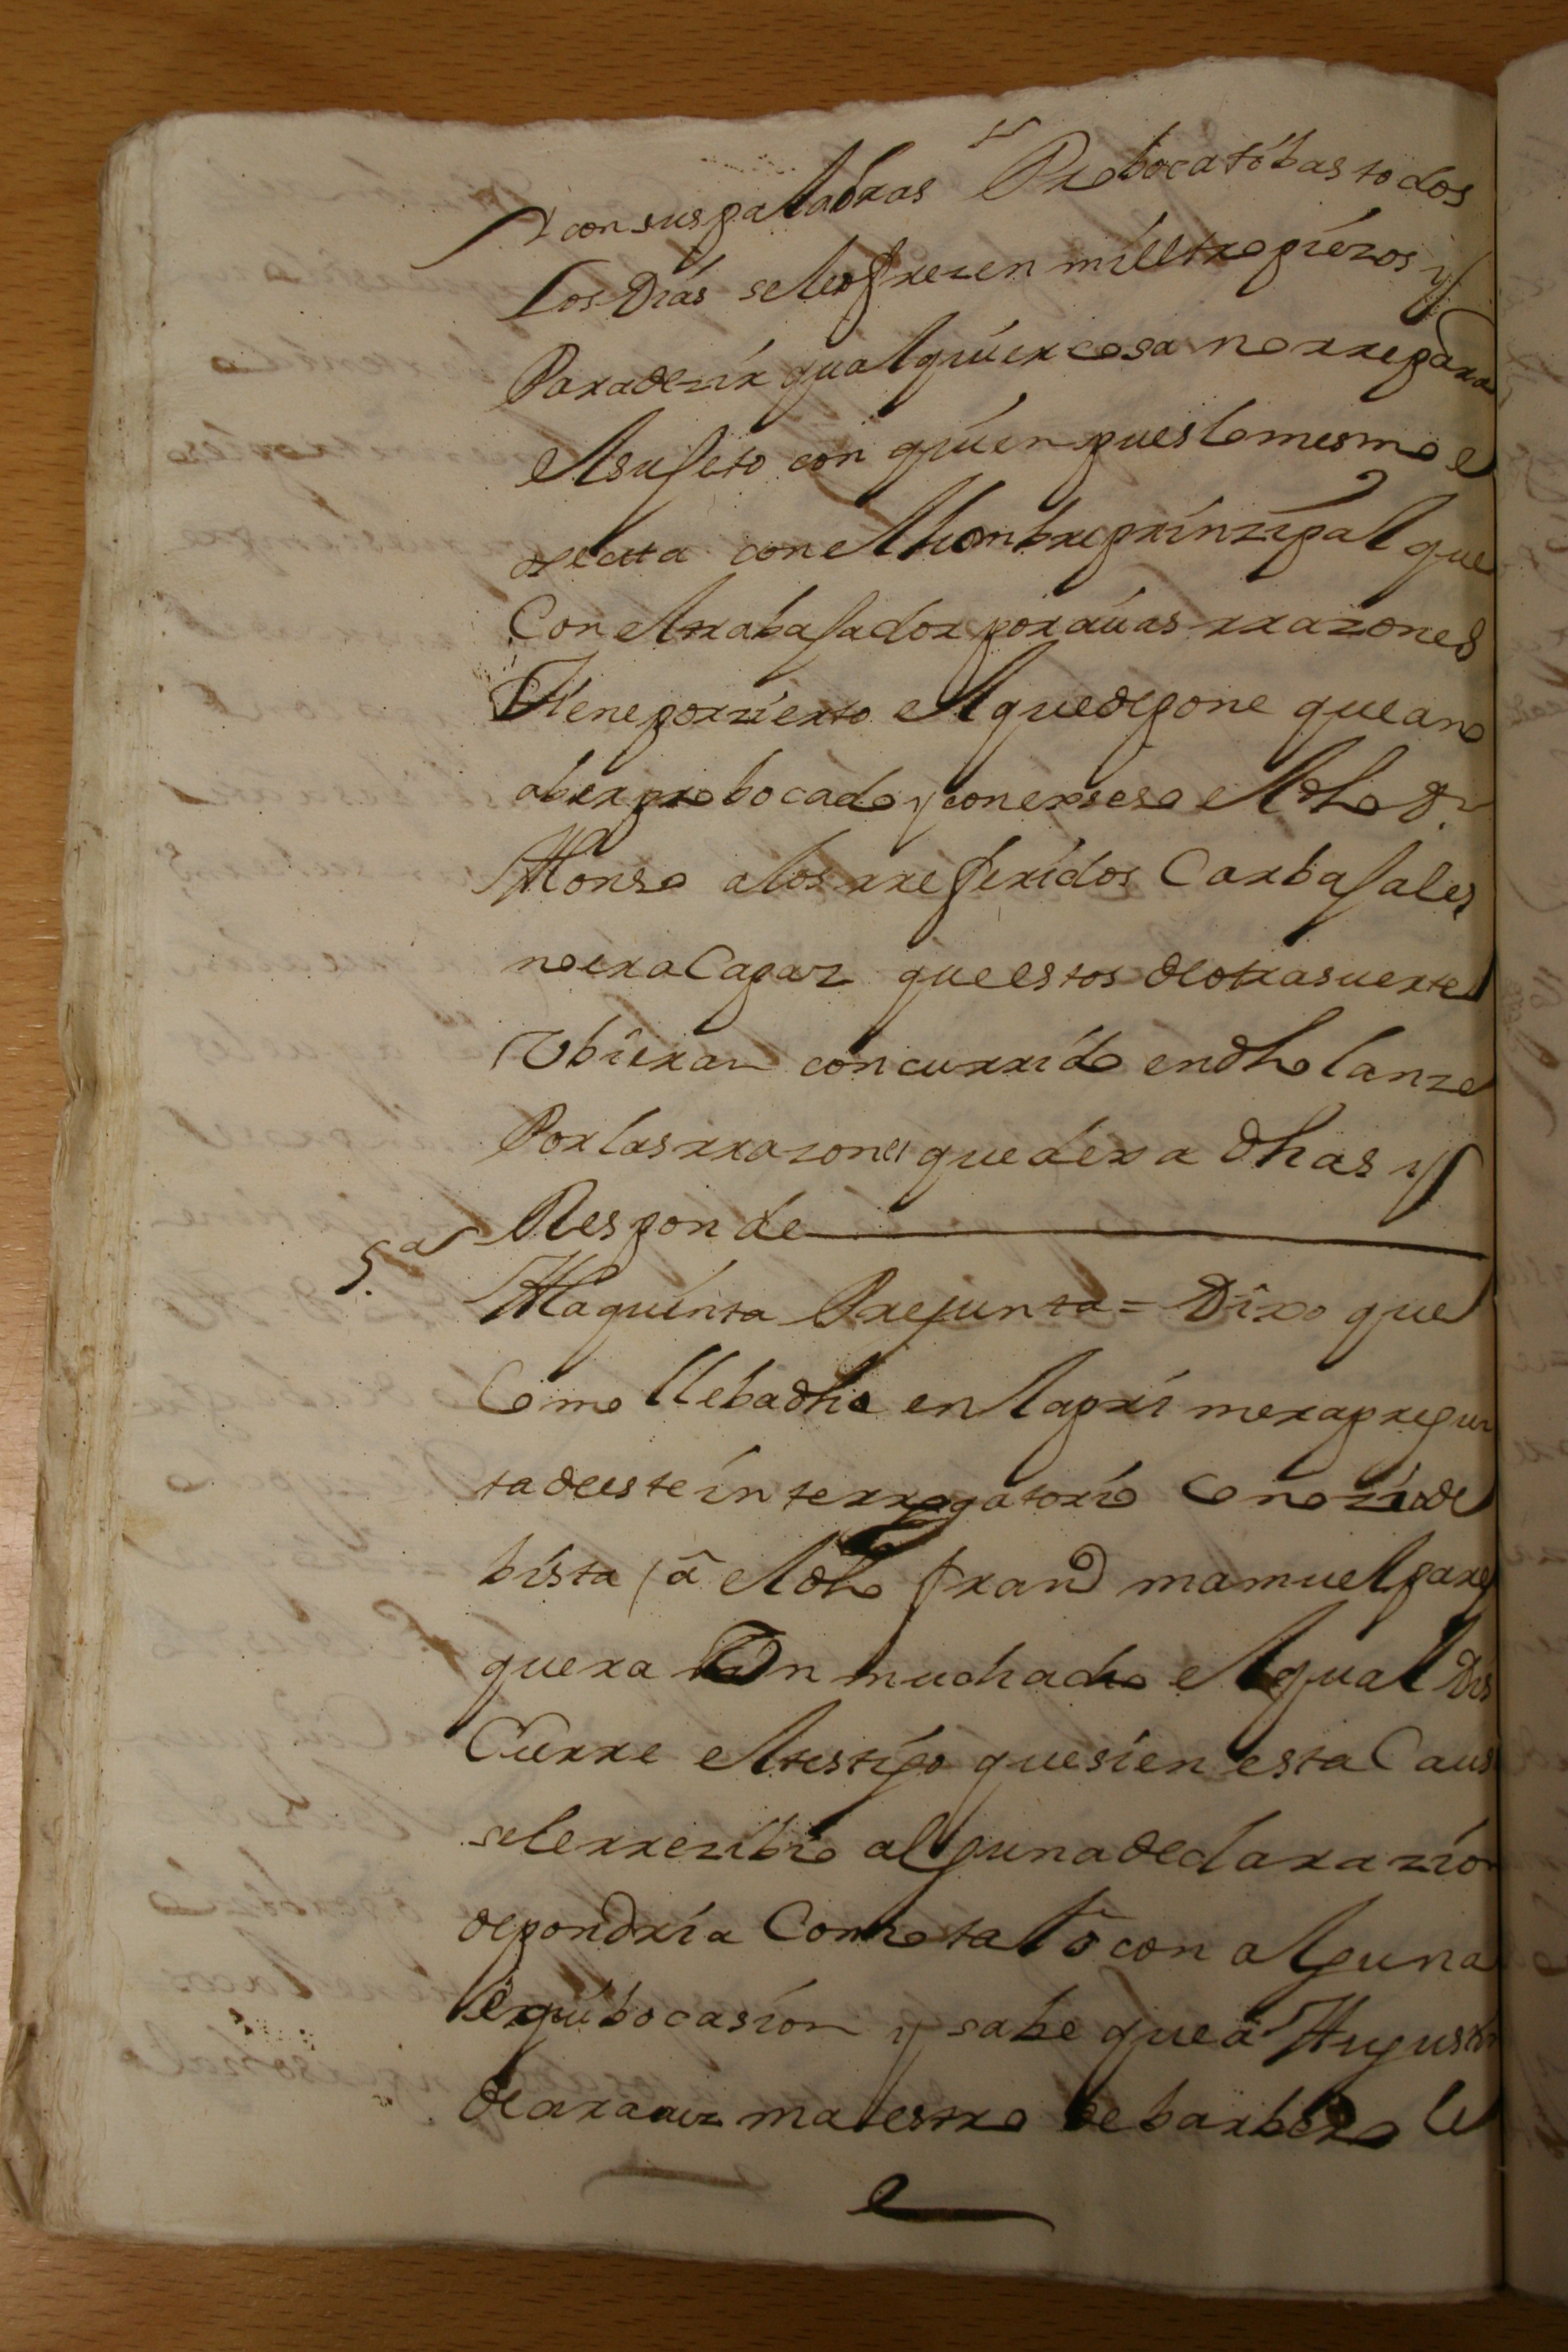 Y con sus palabras Probocatóbas todos
Los Dias se le ofrezen mill tropiezos y
Para dezir qualquier cosa no rrepara
el sujeto con quien pues lo mesmo e
secuta con el hombre prinzipal que
Con el trabajador por cuias rrazones
Tiene por zierto el que depone que a no
aber probocado y conexseso el dho Dn
Alonso a los rreferidos Carbajales
no era Capaz que estos de otra suerte
Ubieran concurrido en dho lanze
Por las rrazones que dexa dhas y
Responde
5.a Ala quinta Prejunta = Dixo que
Como lleba dho en la primera pregun
ta de este interrogatorio Conozio de
bista a el dho fran.co manuel parej
que era Un muchacho el qual Dis
Curre el testigo que si en esta Caus
se le rrezibio alguna declarazion
depondria Como tal ô con alguna
equibocasion y sabe que â Augustin
de aranuz maestro de barbero le